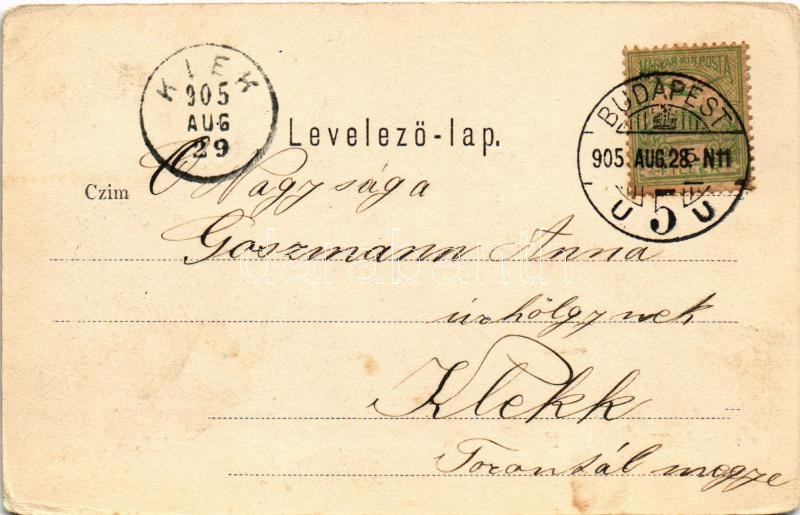 KIEK
905
AUG
29
MAGYAR KIR. POSTA
BUDAPEST
905. AUG. 28. N11
U 5 U
Levelező-lap.
Czim
Ő Nagysága
Goszmann Anna
úrhölgynek
Klekk
Torontál megye
darabanth